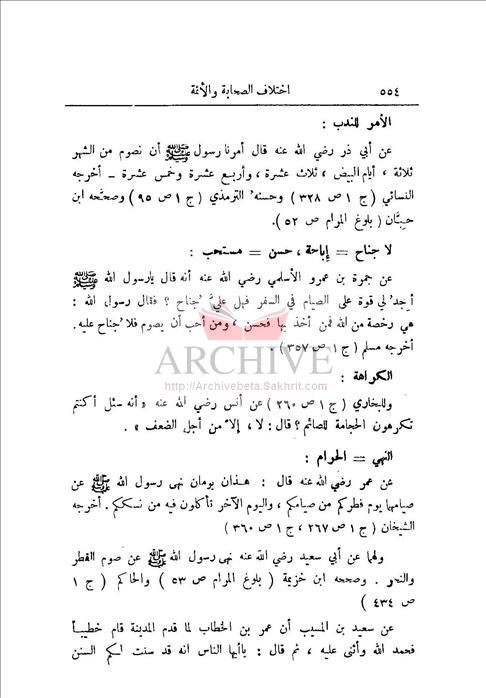 ٥٥٤
اختلاف الصحابة والأئمة
الأمر للندب :
عن أبي ذر رضي الله عنه قال أمرنا رسول ﷺ أن نصوم من الشهر
ثلاثة ، أيام البيض ، ثلاث عشرة ، وأربع عشرة وخمس عشرة - أخرجه
النسائي ( ج ١ ص ٣٢٨ ) وحسنه الترمذي ( ج ١ ص ٩٥ ) وصححه ابن
حبّان ( بلوغ المرام ص ٥٢ ).
لا جناح = إباحة ، حسن = مستحب :
عن حمزة بن عمرو الأسلمي رضي الله عنه أنه قال يارسول الله ﷺ
أجد لي قوة على الصيام في السفر فهل عليّ جناح ؟ فقال رسول الله :
هي رخصة من الله فمن أخذ بها فحسن ، ومن أحب أن يصوم فلا جناح عليه .
أخرجه مسلم ( ج ١ ص ٣٥٧ ) .
ARCHIVE
http://Archivebeta.Sakhrit.com
الكراهة :
وللبخاري ( ج ١ ص ٢٦٠ ) عن أنس رضي الله عنه « أنه سئل أكنتم
تكرهون الحجامة للصائم ؟ قال : لا ، إلاّ من أجل الضعف » .
النهي = الحرام :
عن عمر رضي الله عنه قال : هذان يومان نهى رسول الله ﷺ عن
صيامهما يوم فطركم من صيامكم ، واليوم الآخر تأكلون فيه من نسككم . أخرجه
الشيخان ( ج ١ ص ٢٦٧ ، ج ١ ص ٣٦٠ )
ولهما عن أبي سعيد رضي الله عنه نهى رسول الله ﷺ عن صوم الفطر
والنحر . وصححه ابن خزيمة ( بلوغ المرام ص ٥٣ ) والحاكم ( ج ١
ص ٤٣٤ )
عن سعيد بن المسيب أن عمر بن الخطاب لما قدم المدينة قام خطيباً
فحمد الله وأثنى عليه ، ثم قال : ياأيها الناس انه قد سنت لكم السنن